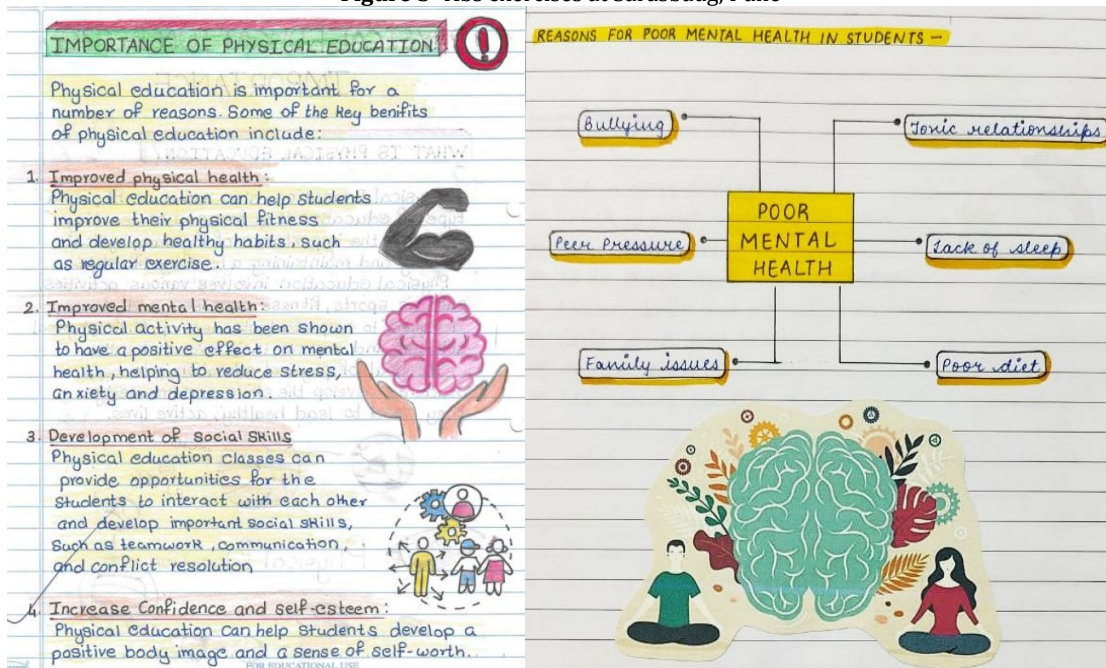 exercises at Sarasbaug, Pune
IMPORTANCE OF PHYSICAL EDUCATION
Physical education is important for a
number of reasons. Some of the key benifits
of physical education include:
1. Improved physical health:
Physical education can help students
improve their physical fitness
and develop healthy habits, such
as regular exercise.
2. Improved mental health:
Physical activity has been shown
to have a positive effect on mental
health, helping to reduce stress,
anxiety and depression.
3. Development of Social Skills
Physical education classes can
provide opportunities for the
students to interact with each other
and develop important social skills,
such as teamwork, communication,
and conflict resolution
4. Increase Confidence and self-esteem:
Physical education can help students develop a
positive body image and a sense of self-worth.
FOR EDUCATIONAL USE
REASONS FOR POOR MENTAL HEALTH IN STUDENTS –
Bullying
Toxic relationships
POOR
MENTAL
HEALTH
Peer Pressure
Lack of sleep
Family issues
Poor diet